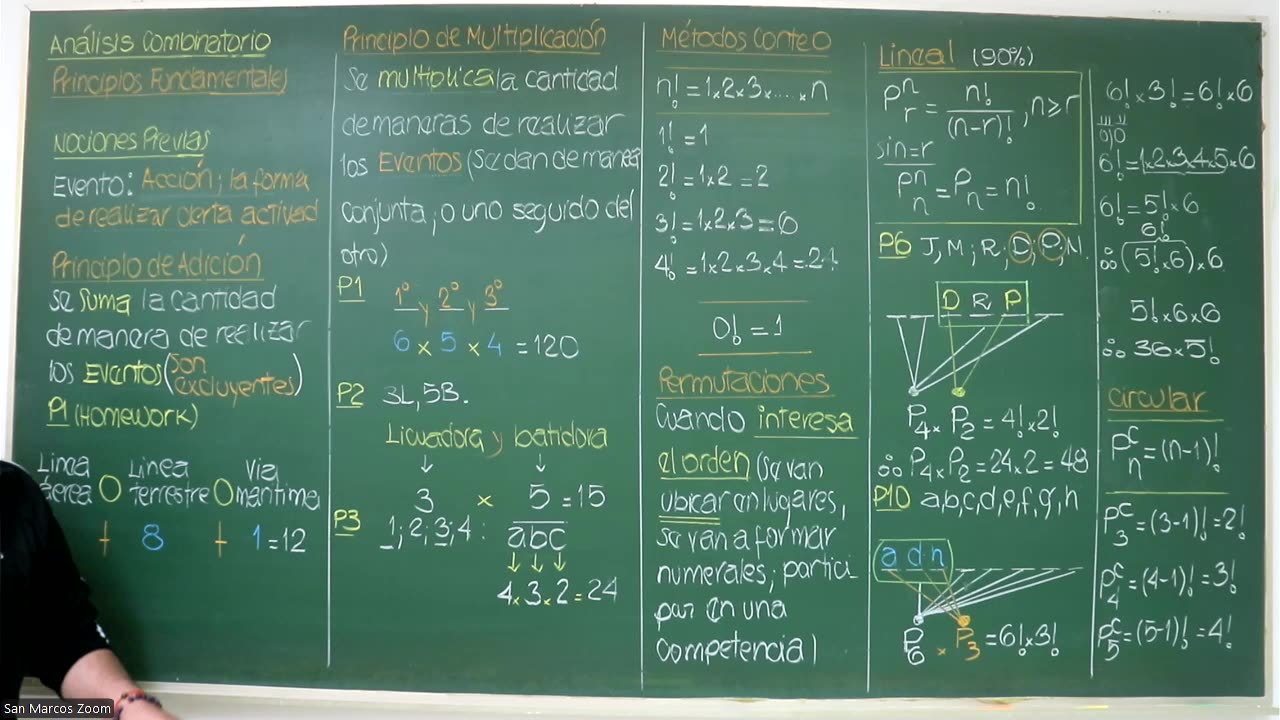 Análisis Combinatorio
Principios Fundamentales
Nociones Previas
Evento: Acción; la forma
de realizar cierta activad
Principio de Adición
se suma la cantidad
de manera de realizar
los Eventos (son
excluyentes)
P1 (Homework)
Linea
aerea O Linea
terrestre O Via
maritima
+ 8 + 1 = 12
Principio de Multiplicación
Se multiplica la cantidad
de maneras de realizar
los Eventos (Se dan de manera
conjunta, o uno seguido del
otro)
P1
1° y 2° y 3°
6 × 5 × 4 = 120
P2 3L, 5B.
Licuadora y batidora
↓ ↓
3 × 5 = 15
P3 1; 2; 3; 4 : abc
↓ ↓ ↓
4 × 3 × 2 = 24
Métodos Conteo
n! = 1×2×3×....×n
1! = 1
2! = 1×2 = 2
3! = 1×2×3 = 6
4! = 1×2×3×4 = 24
0! = 1
Permutaciones
Cuando interesa
el orden (Se van
ubicar en lugares,
se van a formar
numerales; partici-
par en una
competencia)
Lineal (90%)
P^n_r = n!/(n-r)! , n≥r
si n=r
P^n_n = P_n = n!
P6 J, M ; R ; D ; P ; N.
D R P
P_4 × P_2 = 4! × 2!
∴ P_4 × P_2 = 24 × 2 = 48
P10 a,b,c,d,e,f,g,h
a d h
P_6 × P_3 = 6! × 3!
6! × 3! = 6! × 6
6! = 1×2×3×4×5×6
6! = 5! × 6
6!
∴ (5! × 6) × 6
5! × 6 × 6
∴ 36 × 5!
Circular
P^c_n = (n-1)!
P^c_3 = (3-1)! = 2!
P^c_4 = (4-1)! = 3!
P^c_5 = (5-1)! = 4!
San Marcos Zoom